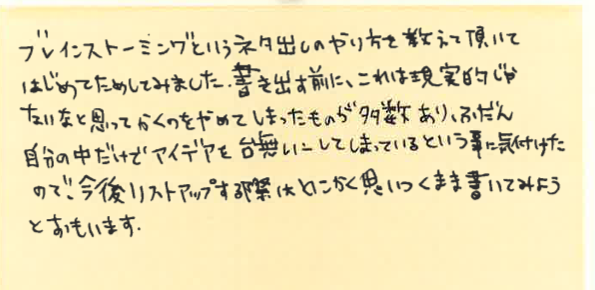 ブレインストーミングというネタ出しのやり方を教えて頂いて
はじめてためしてみました。書き出す前に、これは現実的じゃ
ないなと思ってかくのをやめてしまったものが多数あり、ふだん
自分の中だけでアイデアを台無しにしてしまっているという事に気付けた
ので、今後リストアップする際はとにかく思いつくまま書いてみよう
とおもいます.